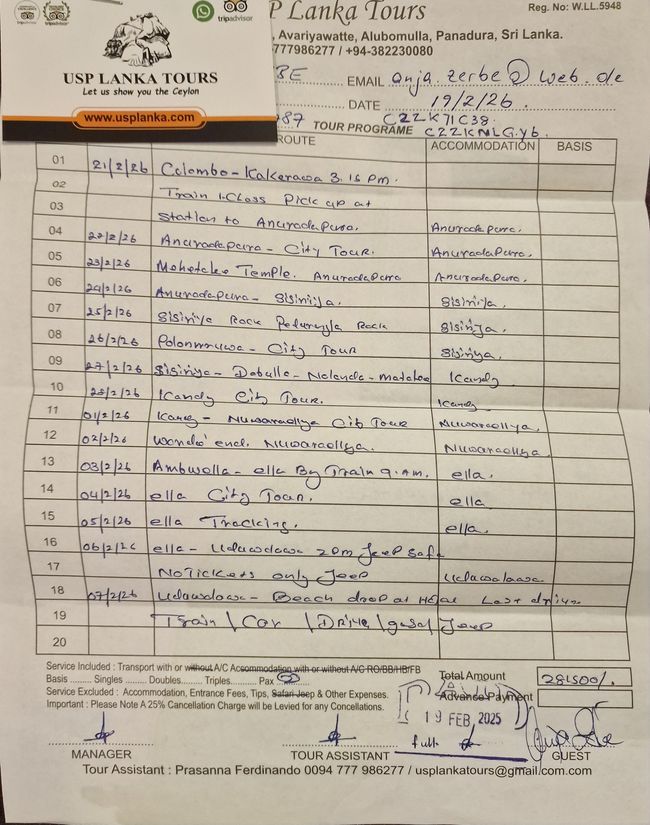 tripadvisor
USP LANKA TOURS
Let us show you the Ceylon
www.usplanka.com
P Lanka Tours
Reg. No: W.LL.5948
tripadvisor
, Avariyawatte, Alubomulla, Panadura, Sri Lanka.
777986277 / +94-382230080
BE EMAIL anja.zerbe@web.de
DATE 19/2/26.
787 TOUR PROGRAME CZZK71C38.
CZZKNLGY6.
ROUTE ACCOMMODATION BASIS
01 21/2/26 Colombo - Kakerawa 3.15 pm.
02 Train 1-Class Pick up at
03 Station to Anuradapura.
04 Anuradapura.
22/2/26 Anuradapura - City Tour. Anuradapura.
05 23/2/26 Mehetale Temple. Anuradapura Anuradapura.
06 24/2/26 Anuradapura - Sisiriya. Sisiriya.
07 25/2/26 Sisiriya Rock Peduruyla Rock Sisiriya.
08 26/2/26 Polonnruwa - City Tour Sisiriya.
09 27/2/26 Sisiriya - Dabulla - Nalanda - matalae Kandy
10 28/2/26 Kandy City Tour. Kandy
11 01/2/26 Kandy - Nuwaraeliya City Tour Nuwaraeliya.
12 02/2/26 wonds' end. Nuwaraeliya. Nuwaraeliya.
13 03/2/26 Ambwella - ella By Train 9.AM. ella.
14 04/2/26 ella City Tour. ella
15 05/2/26 ella Tracking. ella.
16 06/2/26 ella - Udawalawa 2 pm Jeep Safa
17 No Tickets only Jeep Udawalawa
18 07/2/26 Udawalawa - Beach drop at Hotel Last drive
19 Train \ Car \ Drive \ guse/ Jeep
20
Service Included : Transport with or without A/C Accommodation with or without A/C RO/BB/HB/FB
Basis ........ Singles ........ Doubles........ Triples........... Pax 02
Service Excluded : Accommodation, Entrance Fees, Tips, Safari Jeep & Other Expenses.
Important : Please Note A 25% Cancellation Charge will be Levied for any Concellations.
Total Amount 281500/.
Advance Payment
19 FEB 2025
full
MANAGER TOUR ASSISTANT GUEST
Tour Assistant : Prasanna Ferdinando 0094 777 986277 / usplankatours@gmail.com.com